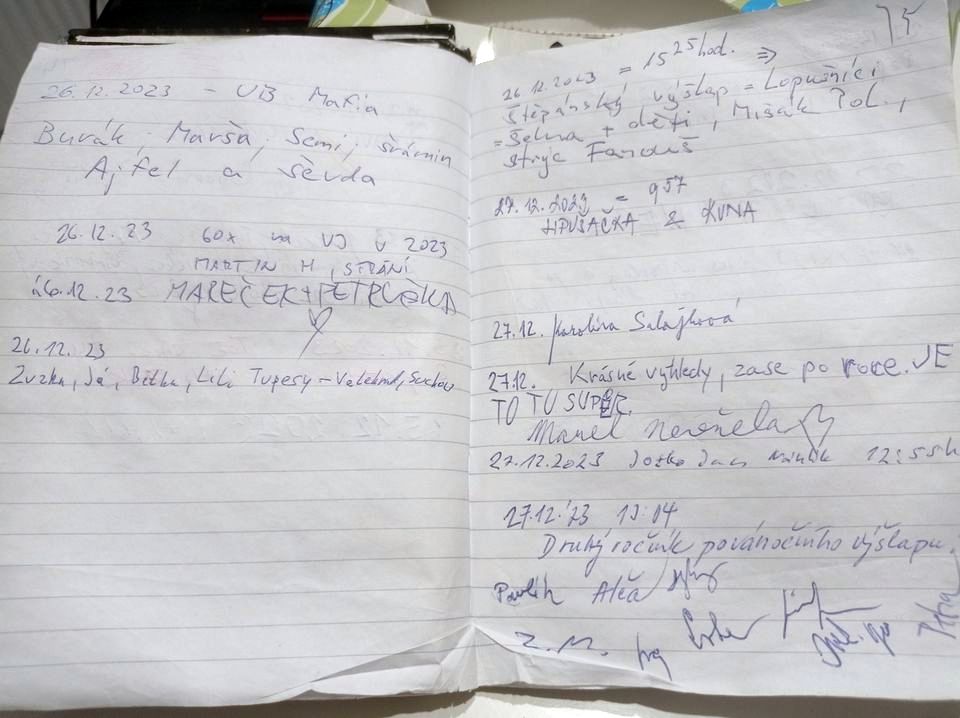 26.12.2023 - UB Mafia
Burák, Marša, Semi, šrámin
Ajfel a ševda
26.12.23 60x na VJ v 2023
MARTIN H, STRÁNÍ
26.12.23 MAREČEK + PETRUŠKA
26.12.23
Zuzka, Já, Bětka, Lili Tupesy - Velehrad, Suchov
75
26.12.2023 = 15 25 hod.
Štěpánský výšlap = Lopušníci ⇒
= Selma + děti, Mišák Pol.,
strýc Fanouš
27.12.2023 = 957
LIPUŠAČKA & KUNA
27.12. Karolína Salajková
27.12. Krásné výhledy, zase po roce. JE
TO TU SUPER.
Marcel
27.12.2023 Jožko 12:55h
27.12.'23 13:04
Druhý ročník povánočního výšlapu.
Pavlík Alča
Z.M.